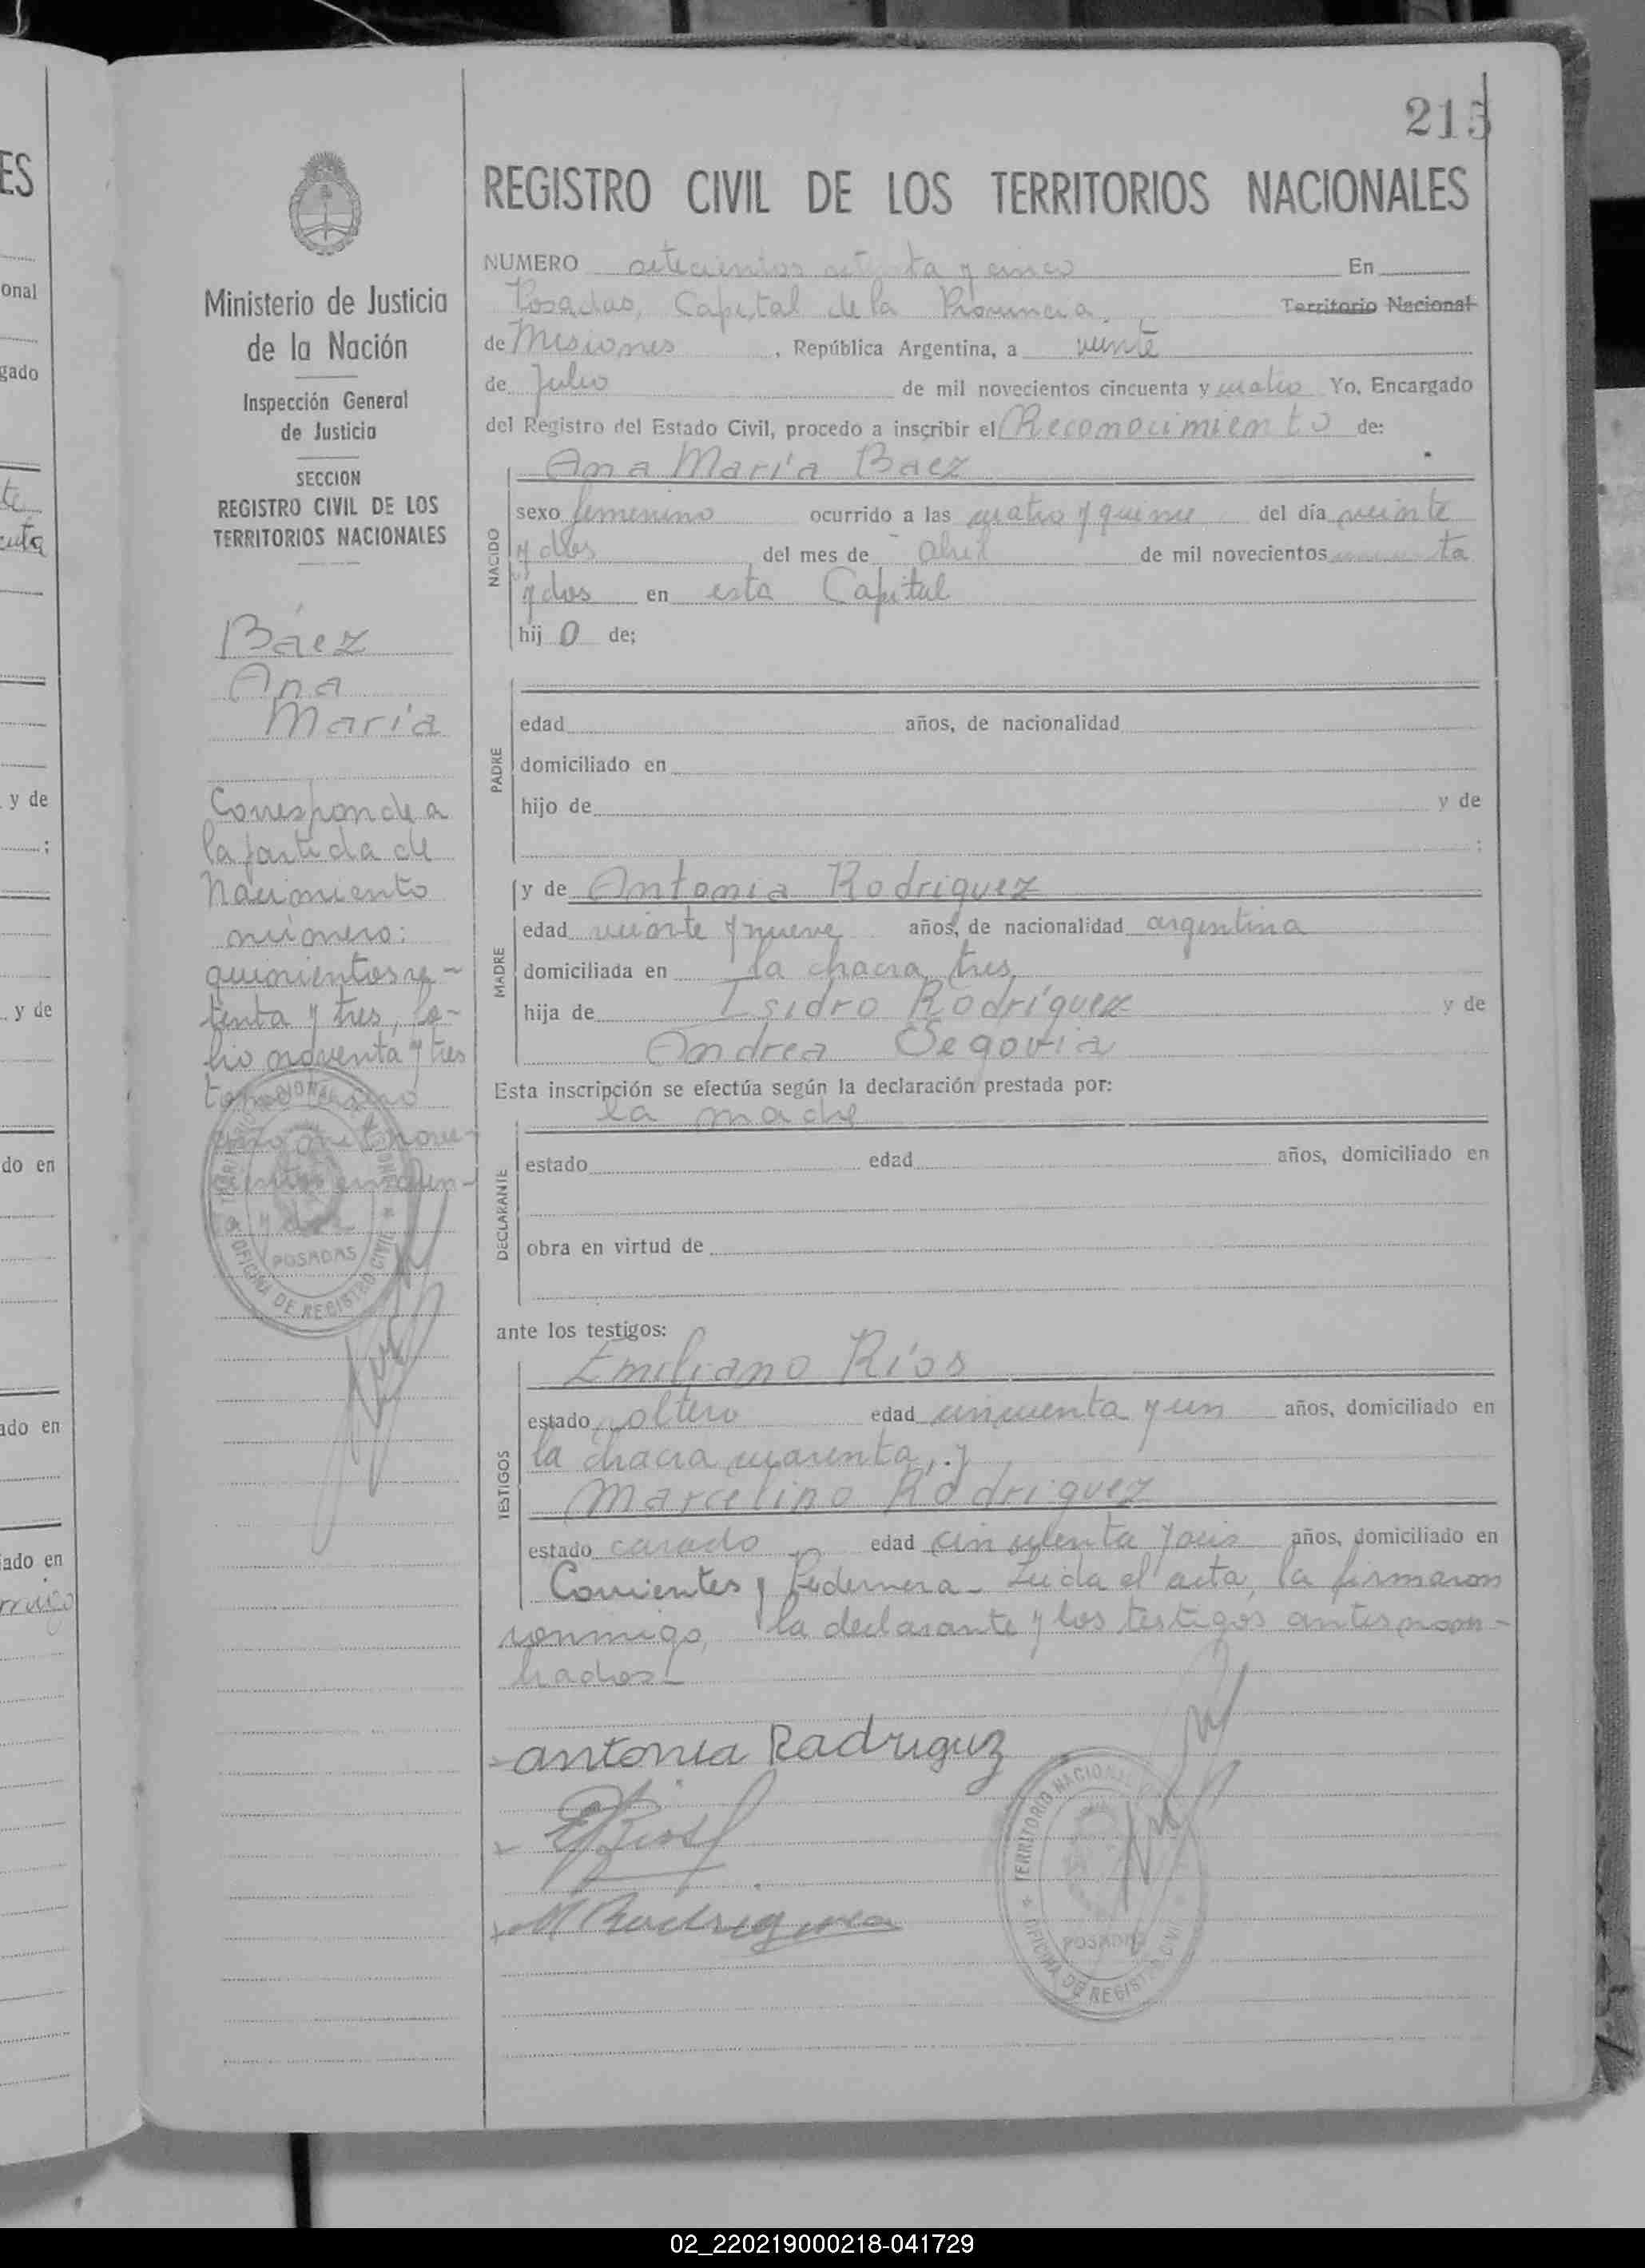 215
REGISTRO CIVIL DE LOS TERRITORIOS NACIONALES
NUMERO setecientos y cinco En
Posadas, Capital de la Provincia, Territorio Nacional
de Misiones, República Argentina, a veinte
de Julio de mil novecientos cincuenta y cuatro Yo, Encargado
del Registro del Estado Civil, procedo a inscribir el Reconocimiento de:
Ana María Baez
NACIDO
sexo femenino ocurrido a las cuatro y quince del día veinte
y dos del mes de Abril de mil novecientos cincuenta
y dos en esta Capital
hij o de;
PADRE
edad años, de nacionalidad
domiciliado en
hijo de y de
;
MADRE
y de Antonia Rodriguez
edad veinte y nueve años, de nacionalidad argentina
domiciliada en la chacra tres
hija de Isidro Rodríguez y de
Andrea Segovia
Esta inscripción se efectúa según la declaración prestada por:
la madre
DECLARANTE
estado edad años, domiciliado en
obra en virtud de
ante los testigos:
Emiliano Ríos
TESTIGOS
estado soltero edad cincuenta y un años, domiciliado en
la chacra cuarenta, y
Marcelino Rodriguez
estado casado edad cincuenta y seis años, domiciliado en
Corrientes y Pedernera - Leida el acta, la firmaron
conmigo, la declarante y los testigos antes nom-
brados.-
antonia Radriguz
E Rios
M Rodriguez
TERRITORIO NACIONAL
POSADAS
OFICINA DE REGISTRO CIVIL
Ministerio de Justicia
de la Nación
Inspección General
de Justicia
SECCION
REGISTRO CIVIL DE LOS
TERRITORIOS NACIONALES
Báez
Ana
María
Corresponde a
la partida de
Nacimiento
número:
quinientos se-
tenta y tres, fo-
lio noventa y tres
tomo
año mil nove-
cientos cincuen-
ta y dos
POSADAS
OFICINA DE REGISTRO CIVIL
ES
onal
gado
y de
;
y de
do en
ado en
iado en
02_220219000218-041729